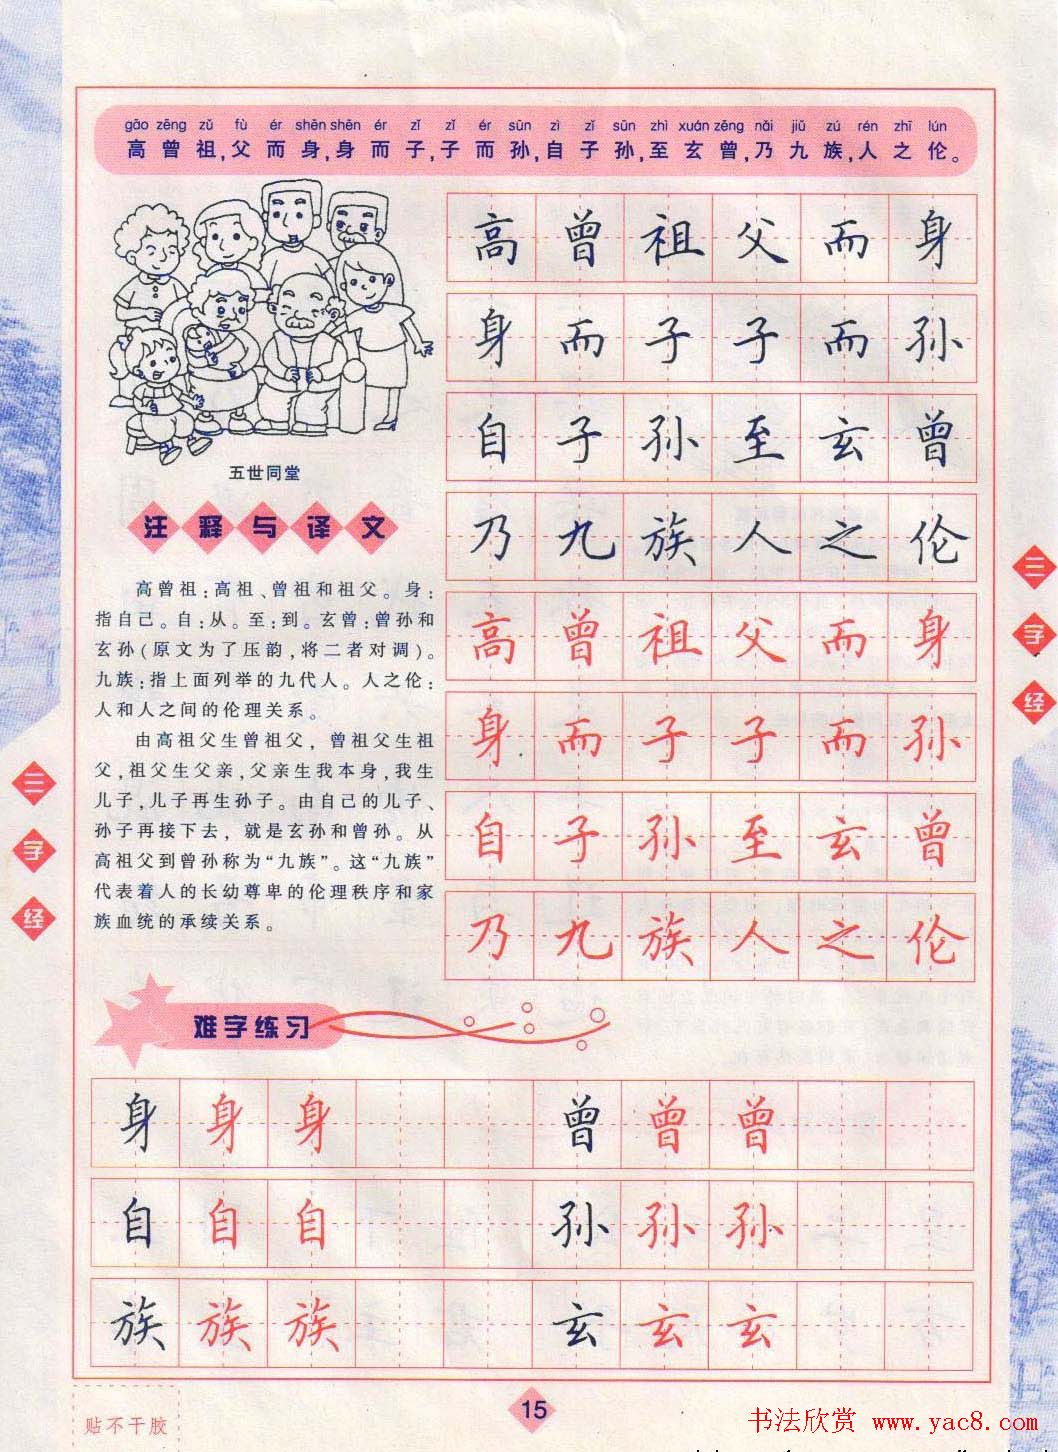 gāo zēng zǔ fù ér shēn shēn ér zǐ zǐ ér sūn zì zǐ sūn zhì xuán zēng nǎi jiǔ zú rén zhī lún
高曾祖,父而身,身而子,子而孙,自子孙,至玄曾,乃九族,人之伦。
五世同堂
注释与译文
高曾祖:高祖、曾祖和祖父。身:
指自己。自:从。至:到。玄曾:曾孙和
玄孙(原文为了压韵,将二者对调)。
九族:指上面列举的九代人。人之伦:
人和人之间的伦理关系。
由高祖父生曾祖父,曾祖父生祖
父,祖父生父亲,父亲生我本身,我生
儿子,儿子再生孙子。由自己的儿子、
孙子再接下去,就是玄孙和曾孙。从
高祖父到曾孙称为“九族”。这“九族”
代表着人的长幼尊卑的伦理秩序和家
族血统的承续关系。
高曾祖父而身
身而子子而孙
自子孙至玄曾
乃九族人之伦
高曾祖父而身
身而子子而孙
自子孙至玄曾
乃九族人之伦
三字经
三字经
难字练习
身身身 曾曾曾
自自自 孙孙孙
族族族 玄玄玄
贴不干胶
15
书法欣赏 www.yac8.com